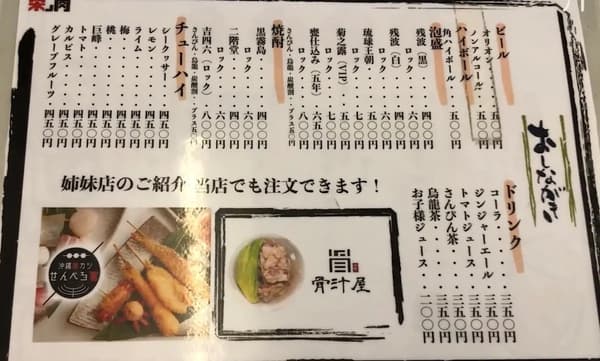 おしながき
ビール
オリオン・・・五五〇円
ノンアルコール・・五〇〇円
ハイボール
角ハイボール・・五〇〇円
泡盛
残波（黒）・・・四〇〇円
ロック・・・六〇〇円
残波（白）・・・四〇〇円
ロック・・・六〇〇円
琉球王朝・・・五〇〇円
ロック・・・七〇〇円
菊之露（VIP）・・五〇〇円
ロック・・・七〇〇円
甕仕込み（五年）・・六五〇円
ロック・・・八〇〇円
さんぴん・烏龍・炭酸割・・プラス五〇円
焼酎
黒霧島・・・四〇〇円
ロック・・・六〇〇円
二階堂・・・四〇〇円
ロック・・・六〇〇円
吉四六（ロック）・・八〇〇円
さんぴん・烏龍・炭酸割・・プラス五〇円
チューハイ
シークヮサー・・・四五〇円
レモン・・・四五〇円
ライム・・・四五〇円
梅・・・四五〇円
桃・・・四五〇円
巨峰・・・四五〇円
トマト・・・四五〇円
カルピス・・・四五〇円
グレープフルーツ・・四五〇円
ドリンク
コーラ・・・三五〇円
ジンジャーエール・・三五〇円
トマトジュース・・三五〇円
さんぴん茶・・・三五〇円
烏龍茶・・・三五〇円
お子様ジュース・・二〇〇円
姉妹店のご紹介 当店でも注文できます！
沖縄串カツ
せんべろ屋
骨汁屋